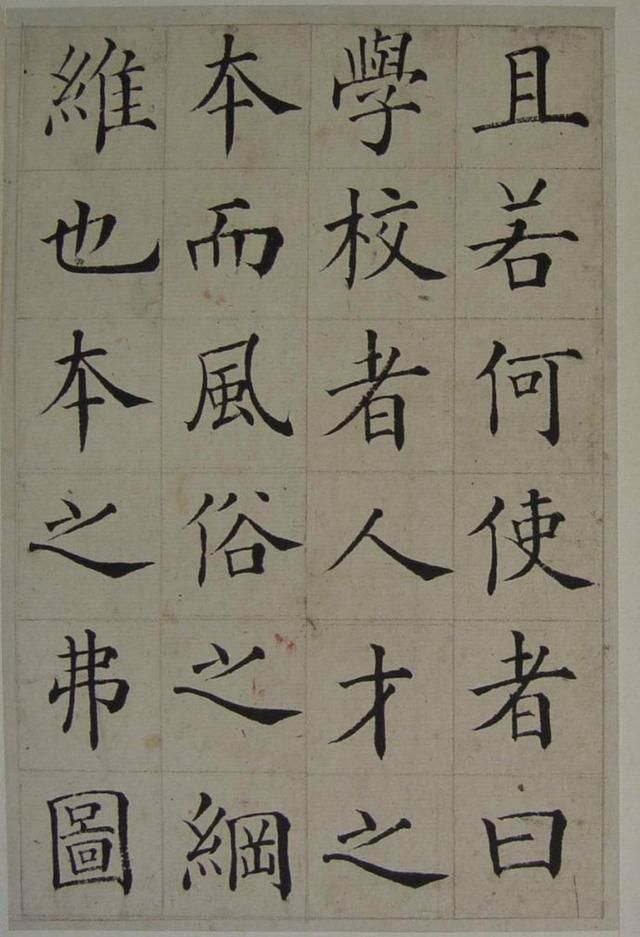 且若何使者曰
學校者人才之
本而風俗之綱
維也本之弗圖